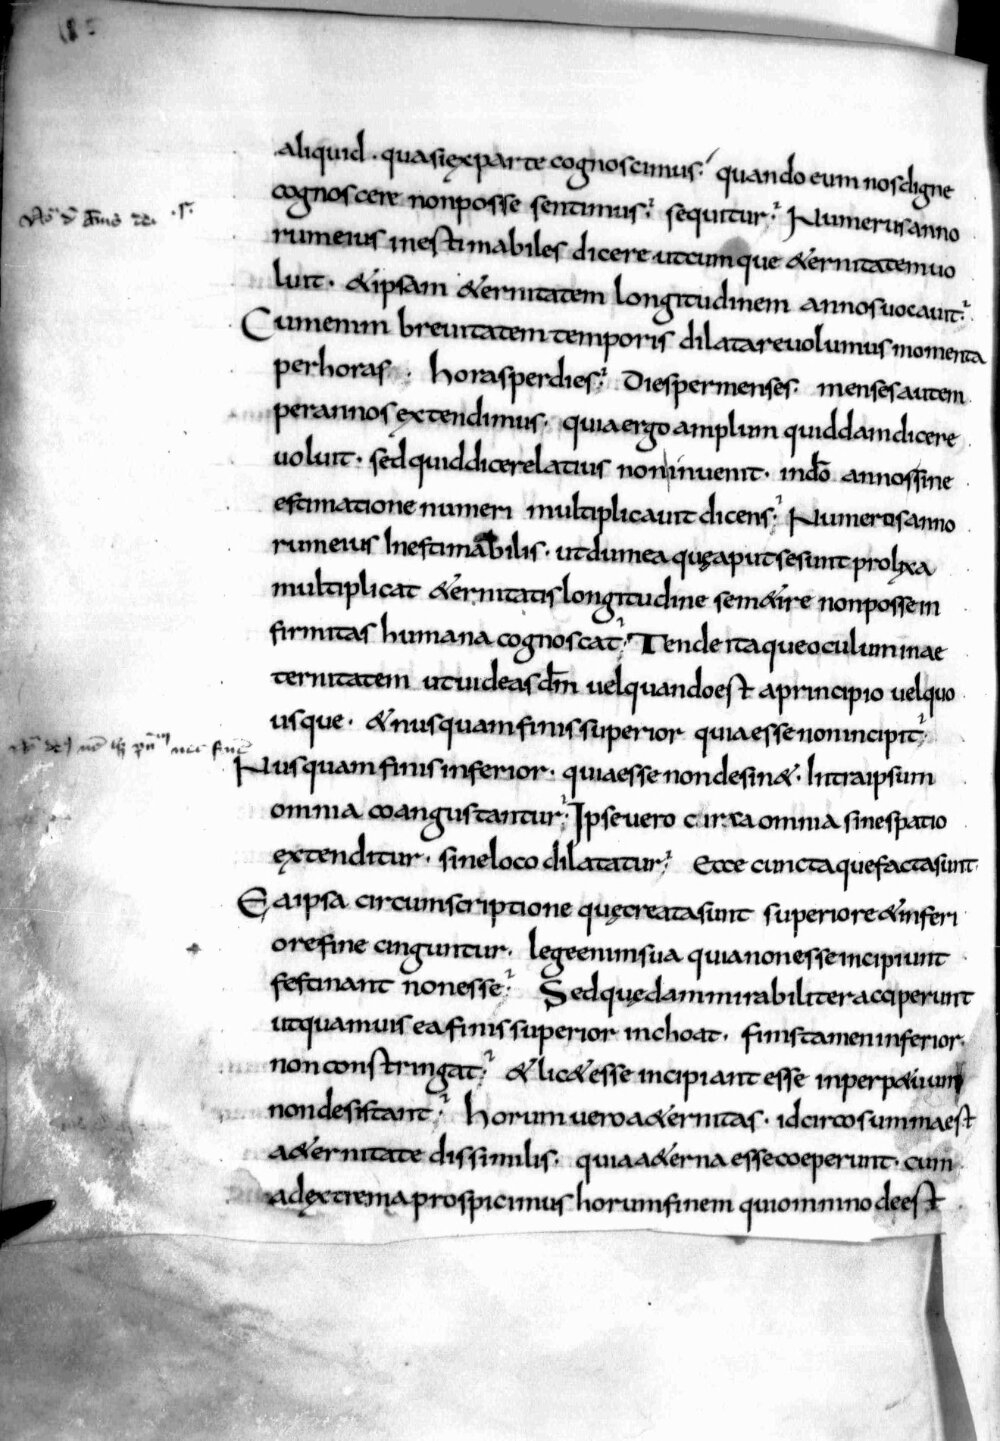 aliquid · quasi ęxparte cognoscimus · quando eum nos digne
cognoscere non posse sentimus · sequitur · Numerus anno
rum eius inestimabiles dicere utcumque &ernitatem uo
luit · & ipsam &ernitatem longitudinem annos uocauit ·
Cum enim breuitatem temporis dilatare uolumus momenta
per horas · horas per dies · Dies per menses · menses autem
per annos ęxtendimus · quia ergo amplum quiddam dicere
uoluit · sed quid dicere latius non inuenit · indō annos sine
estimatione numeri multiplicauit dicens · Numerus anno
rum eius Inestimabilis · ut dum ea quę aput se sunt prolyxa
multiplicat &ernitatis longitudine sem&ire non posse in
firmitas humana cognoscat · Tende itaque oculum in ae
ternitatem ut uideas dm̄ uel quando est a principio uel quo
usque · & nusquam finis superior quia esse non incipit ·
Nusquam finis inferior · quia esse non desin& · Intra ipsum
omnia coangustantur · Ipse uero circa omnia sine spatio
ęxtenditur · sine loco dilatatur · Ecce cuncta que facta sunt ·
Ea ipsa circumscriptione quę creata sunt superiore & inferi
ore fine cinguntur · lege enim sua quia non esse incipiunt
festinant non esse · Sed quędam mirabiliter acciperunt
ut quamuis ea finis superior inchoat · finis tamen inferior
non constringat · & lic& esse incipiant esse in perp&uum
non desistant · horum uero a&ernitas · idcirco summa est
a&ernitate dissimilis · quia a&erna esse coeperunt · cum
ad ęxtrema prospicimus horum finem qui omnino deest